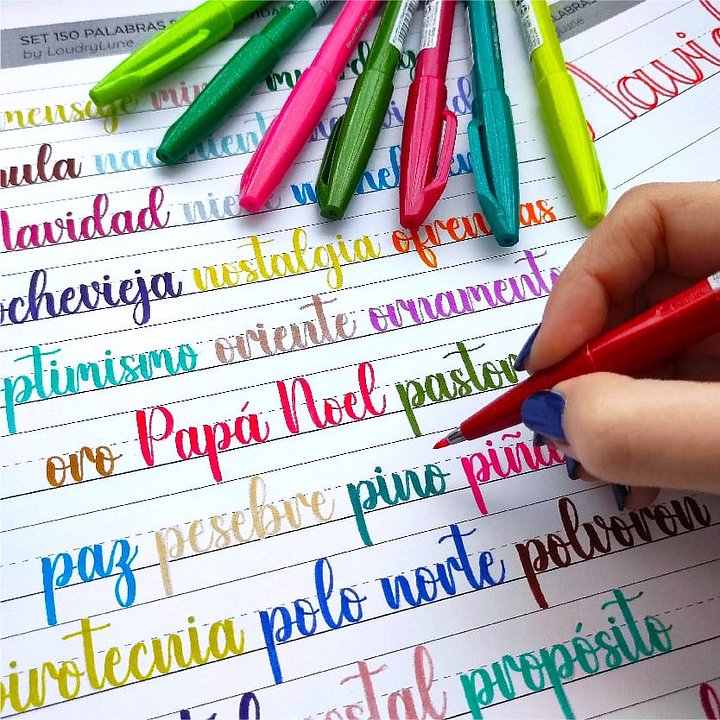 SET 150 PALABRAS
by LoudryLune
mensaje
Navidad nieve
ochevieja nostalgia ofrendas
ptimismo oriente ornamento
oro Papá Noel pastor
paz pesebre pino piña
pirotecnia polo norte polvorón
postal propósito